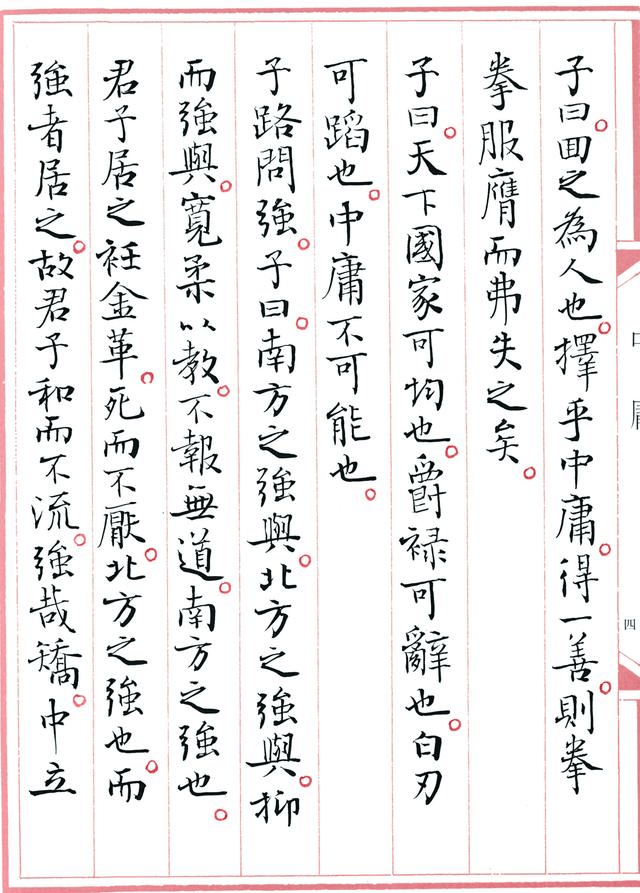 中庸
四
子曰。囬之為人也。擇乎中庸。得一善。則拳
拳服膺而弗失之矣。
子曰。天下國家可均也。爵禄可辭也。白刃
可蹈也。中庸不可能也。
子路問強。子曰。南方之強與。北方之強與。抑
而強與。寬柔以教。不報無道。南方之強也。
君子居之衽金革。死而不厭。北方之強也。而
強者居之。故君子和而不流。強哉矯。中立